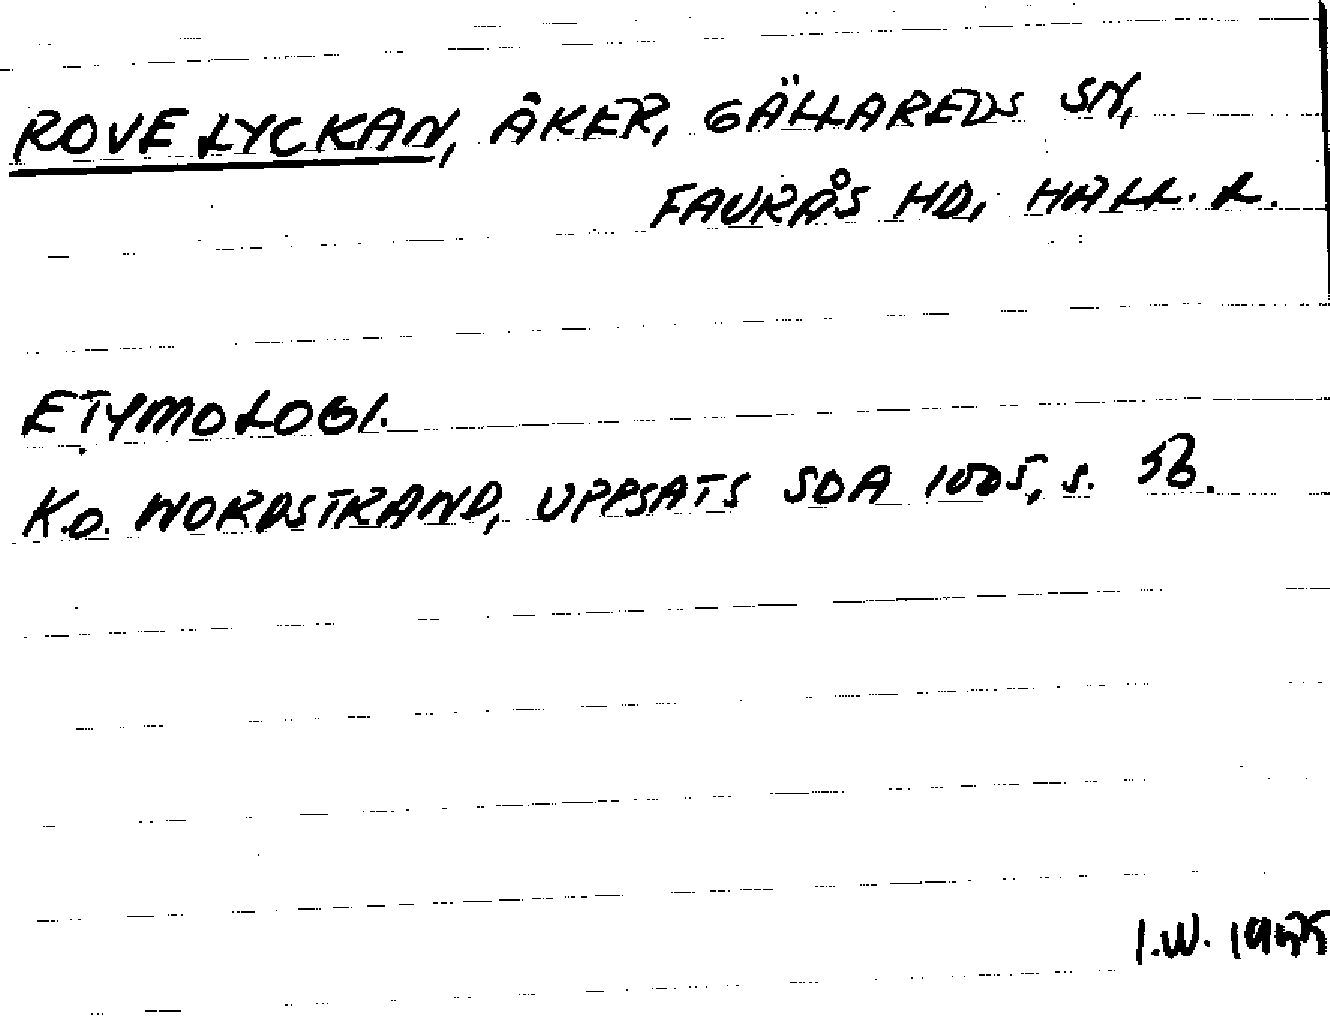 ROVELYCKAN, ÅKER, GÄLLAREDS SN,
FAURÅS HD, HALL. L.
ETYMOLOGI.
K.O. NORDSTRAND, UPPSATS SDA 1005, S. 56.
I.W. 1955